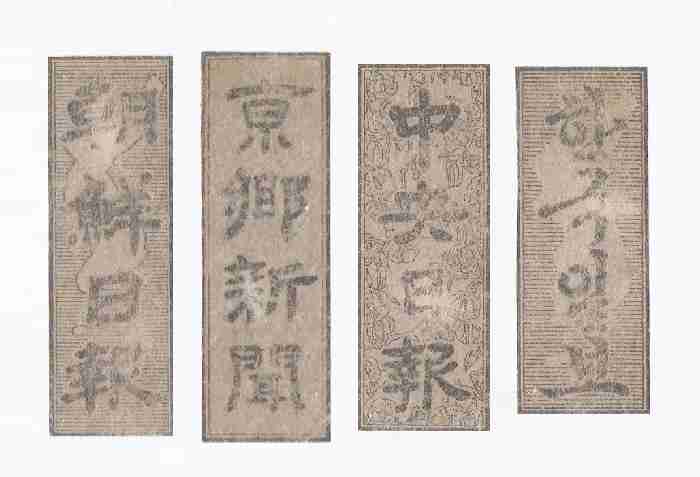 朝鮮日報
京鄕新聞
中央日報
한국일보